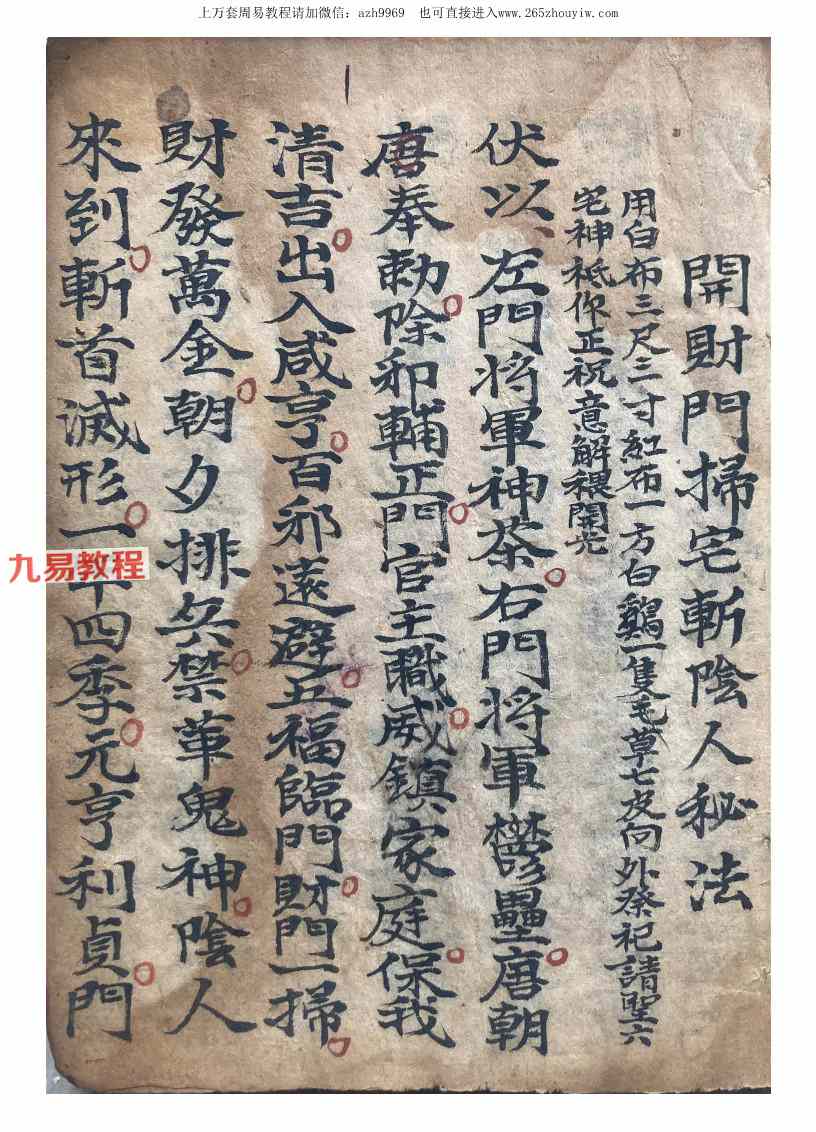 上万套周易教程请加微信：azh9969 也可直接进入www.265zhouyiw.com
開財門掃宅斬陰人秘法
用白布三尺三寸紅布一方白鷄一隻毛草七皮向外祭祀請聖六
宅神祗你正祝意解禳開光
伏以、左門将軍神荼右門将軍鬱壘唐朝
唐奉勅除邪輔正門官主職威鎮家庭保我
清吉出入咸亨百邪遠避五福臨門財門一掃
財發萬金朝夕排兵禁革鬼神陰人
來到斬首滅形一年四季元亨利貞門
九易教程